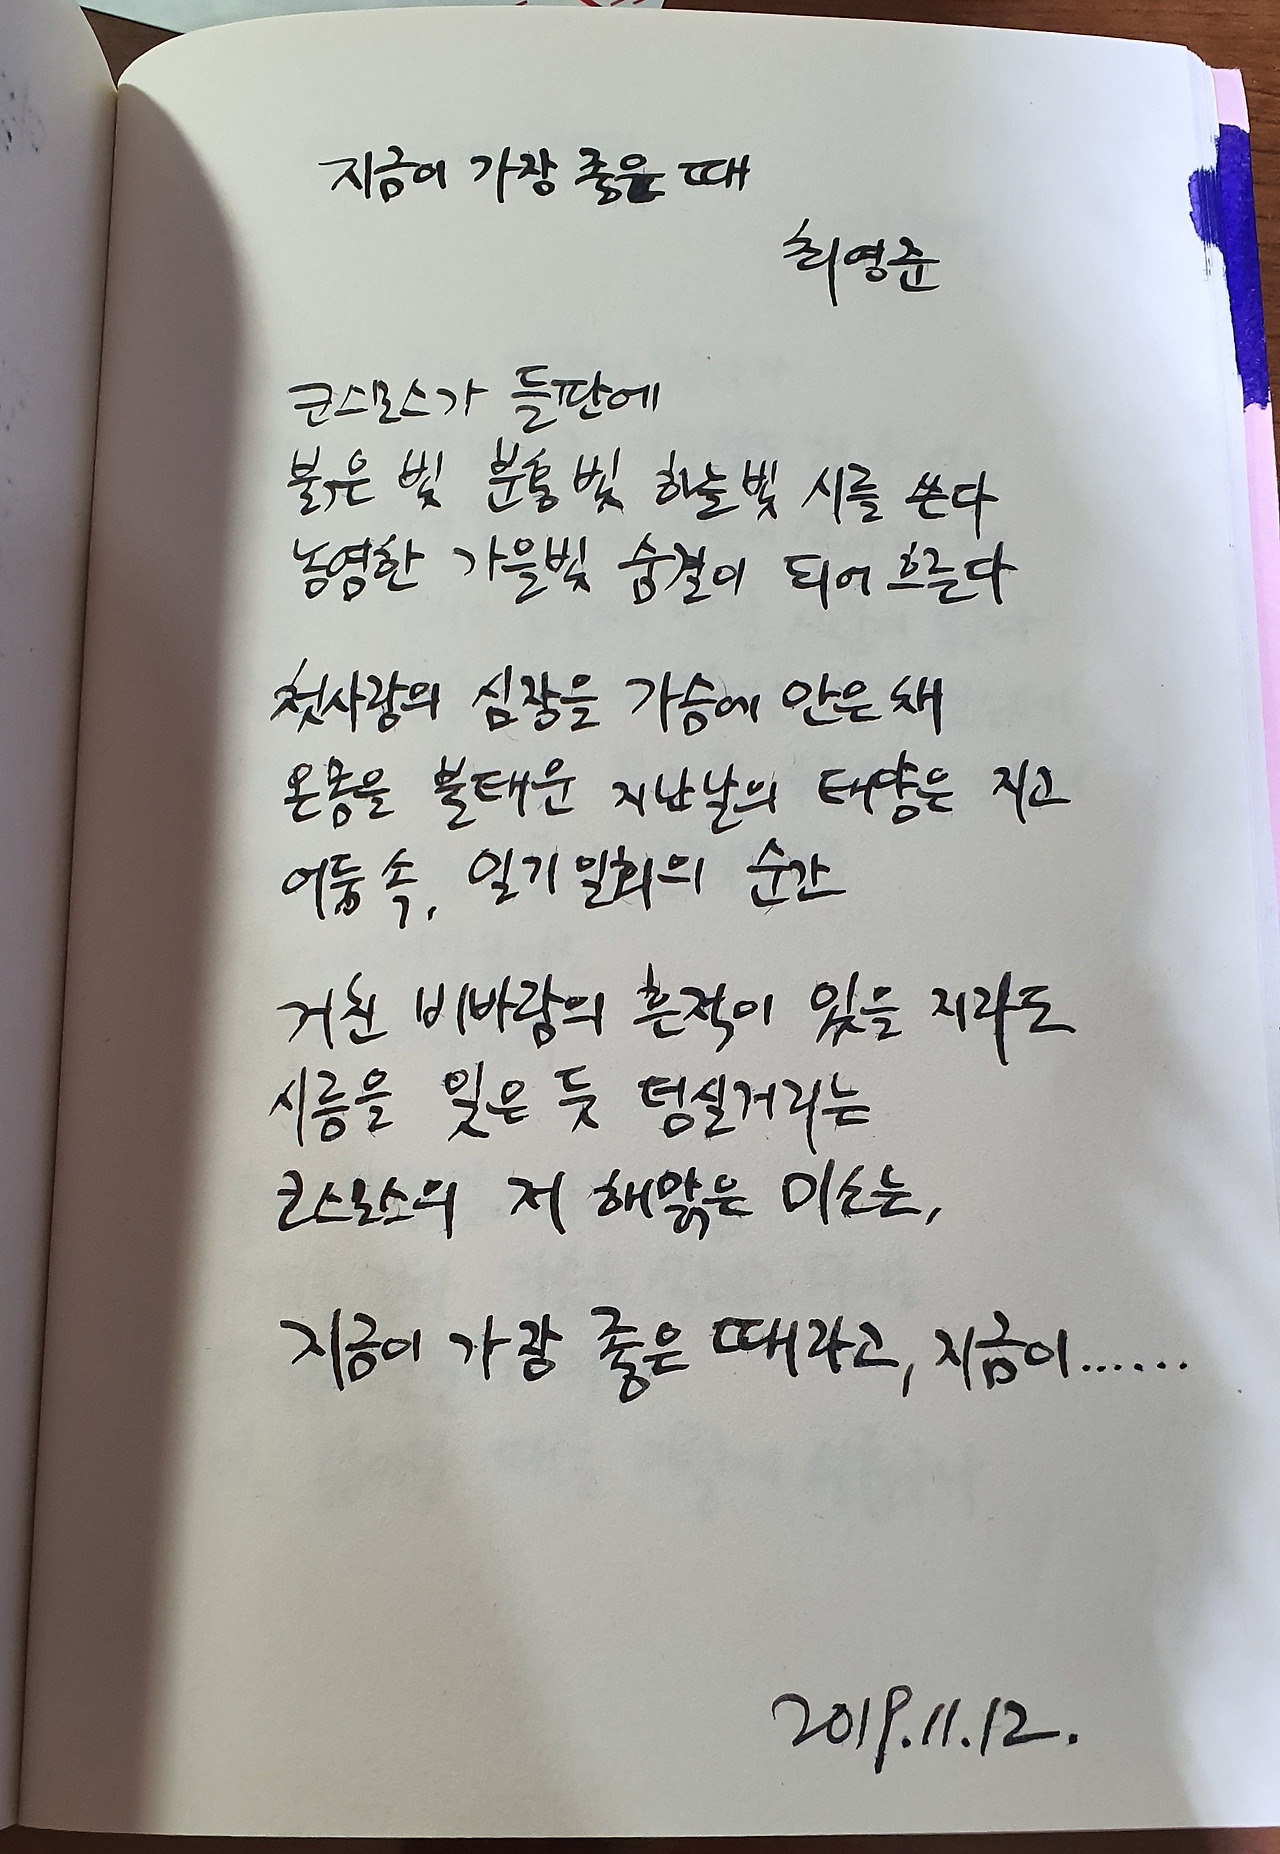 지금이 가장 좋은 때
최영준
코스모스가 들판에
붉은 빛 분홍빛 하늘빛 시를 쓴다
농염한 가을빛 숨결이 되어 흐른다
첫사랑의 심장을 가슴에 안은 채
온몸을 불태운 지난날의 태양은 지고
어둠 속, 일기일회의 순간
거친 비바람의 흔적이 있을 지라도
시름을 잊은 듯 넘실거리는
코스모스의 저 해맑은 미소는,
지금이 가장 좋은 때라고, 지금이......
2019.11.12.